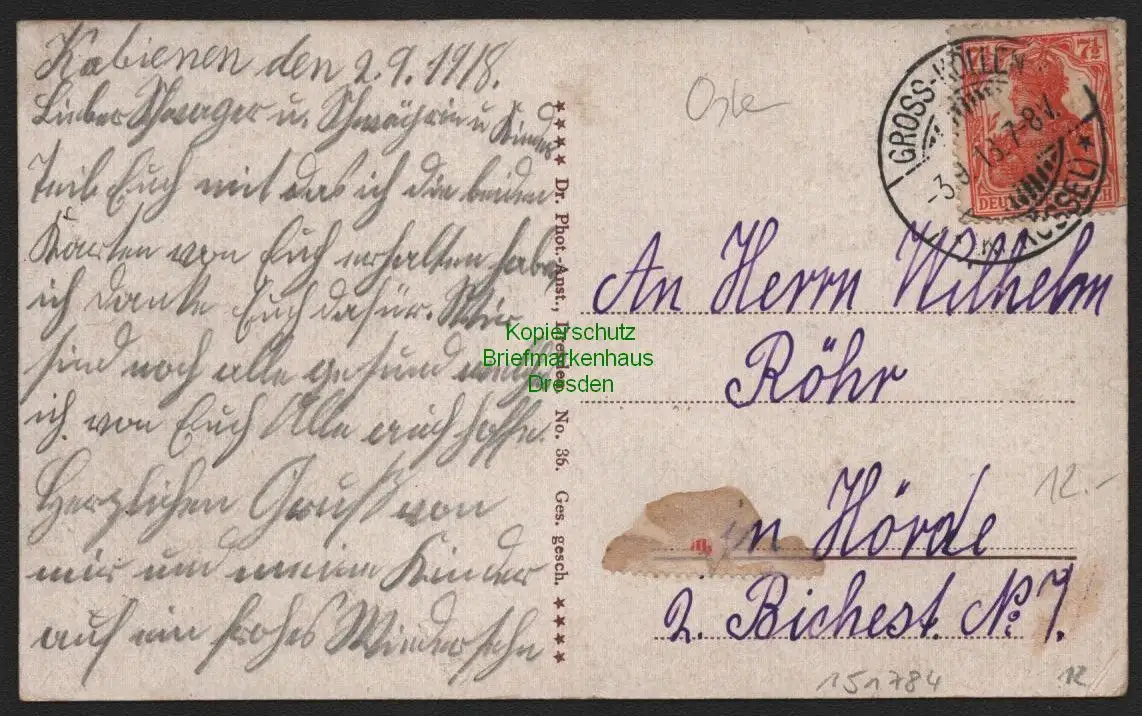 Kabienen den 2.9.1918.
Lieber Schwager u. Schwägrin u Kinder
Teile Euch mit das ich die beiden
Karten von Euch erhalten habe
ich danke Euch dafür. Wir
sind noch alle gesund welches
ich von Euch Alle auch hoffe.
Herzlichen Gruß von
mir und meine Kinder
auf ein frohes Wiedersehn
★★★★ Dr. Phot.-Anst., Dresden No. 36. Ges. gesch. ★★★★★
Kopierschutz
Briefmarkenhaus
Dresden
GROSS-KÖLLEN
-3.9.18.7-8V.
RÖSSEL) ★
7½
An Herrn Wilhelm
Röhr
in Hörde
2. Bichest. No 7.
12.-
151784
12